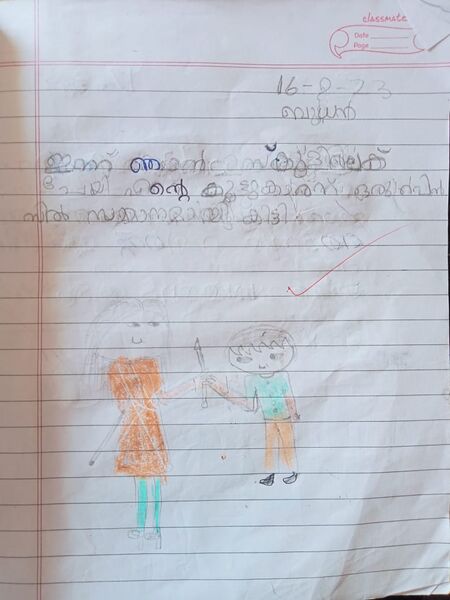 classmate
Date
Page
16-8-23
ബുധൻ
ഇന്ന് ഞാൻ സ്കൂളിലേക്ക്
പോയി എന്റെ കൂട്ടുകാരന് ഒരു പെൻ
സിൽ സമ്മാനമായി കിട്ടി